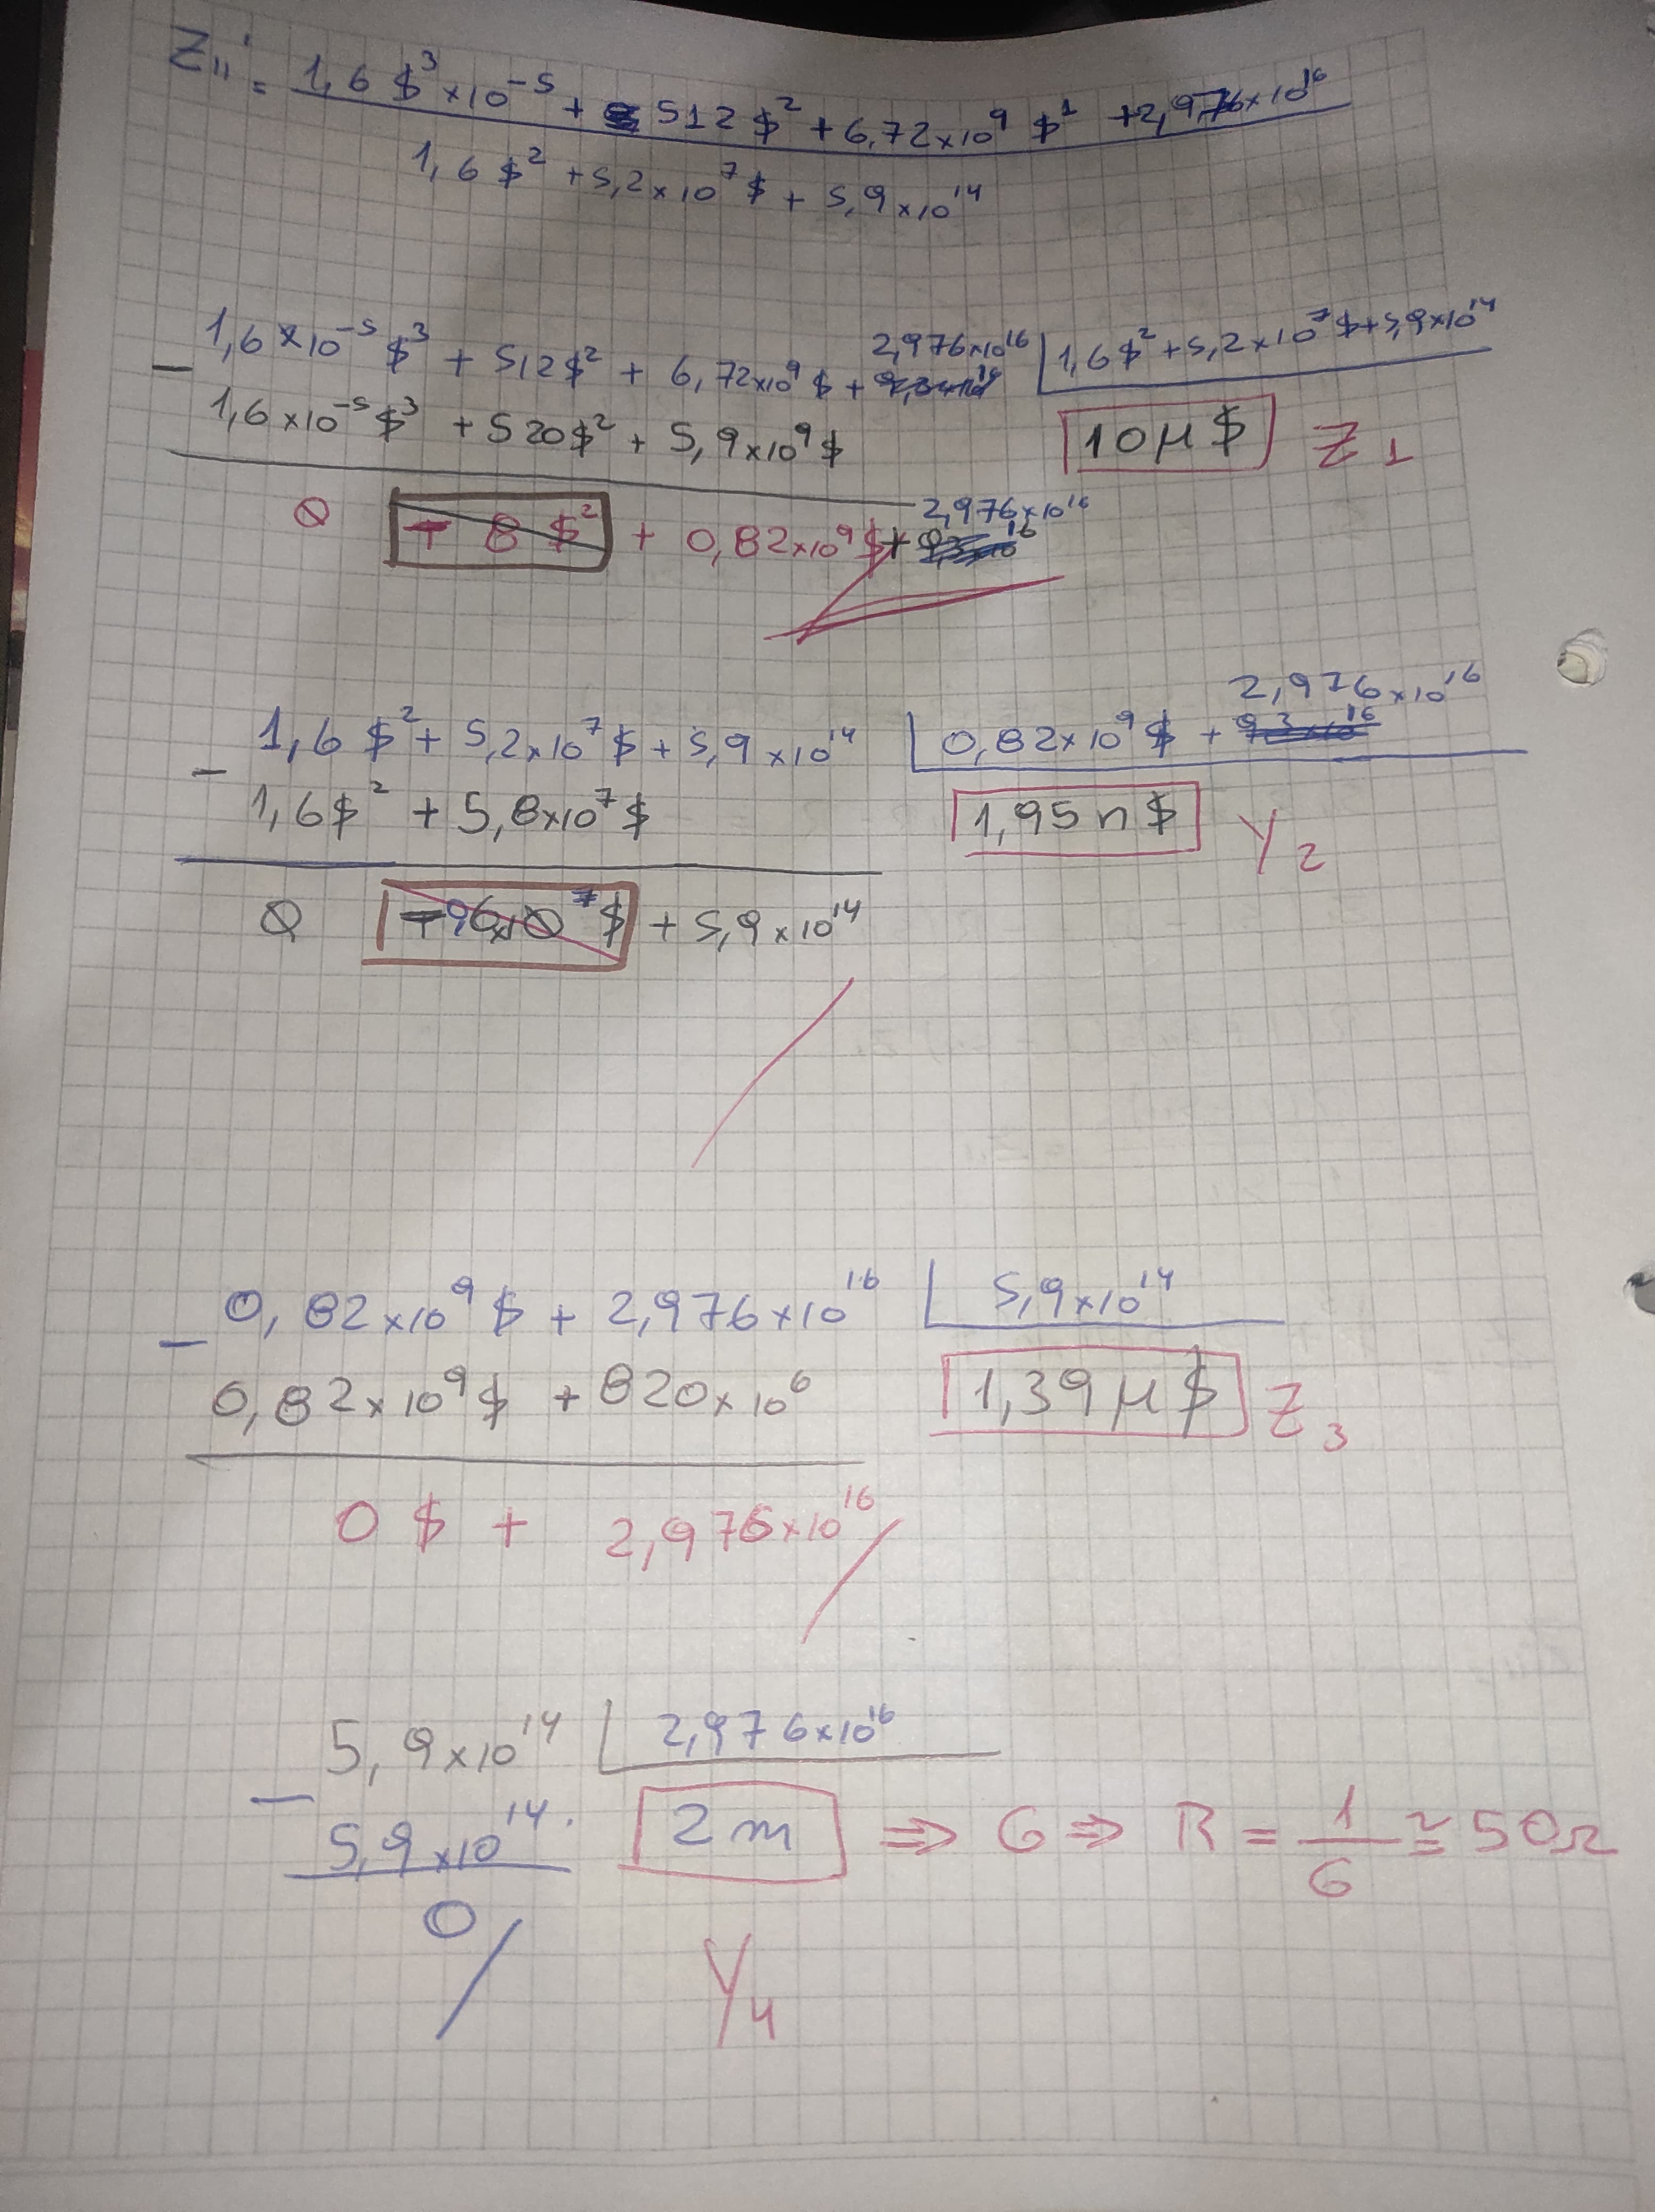 Z11' = 1,6 $³ ×10⁻⁵ + 512 $² + 6,72×10⁹ $¹ + 2,976×10¹⁶
1,6 $² + 5,2×10⁷ $ + 5,9×10¹⁴
2,976×10¹⁶
− 1,6×10⁻⁵ $³ + 512$² + 6,72×10⁹ $ + 1,6$² + 5,2×10⁷ $ + 5,9×10¹⁴
1,6×10⁻⁵ $³ + 520$² + 5,9×10⁹ $ 10μ$ Z1
2,976×10¹⁶
0 − 8 $² + 0,82×10⁹ $ +
2,976×10¹⁶
− 1,6 $² + 5,2×10⁷ $ + 5,9×10¹⁴ 0,82×10⁹ $ +
1,6$² + 5,8×10⁷ $ 1,95 n $ Y2
0 $ + 5,9×10¹⁴
− 0,82×10⁹ $ + 2,976×10¹⁶ 5,9×10¹⁴
0,82×10⁹ $ + 820×10⁶ 1,39 μ $ Z3
0 $ + 2,976×10¹⁶
− 5,9×10¹⁴ 2,976×10¹⁶
5,9×10¹⁴. 2 m ⇒ G ⇒ R = 1/G ≅ 50Ω
0
Y4